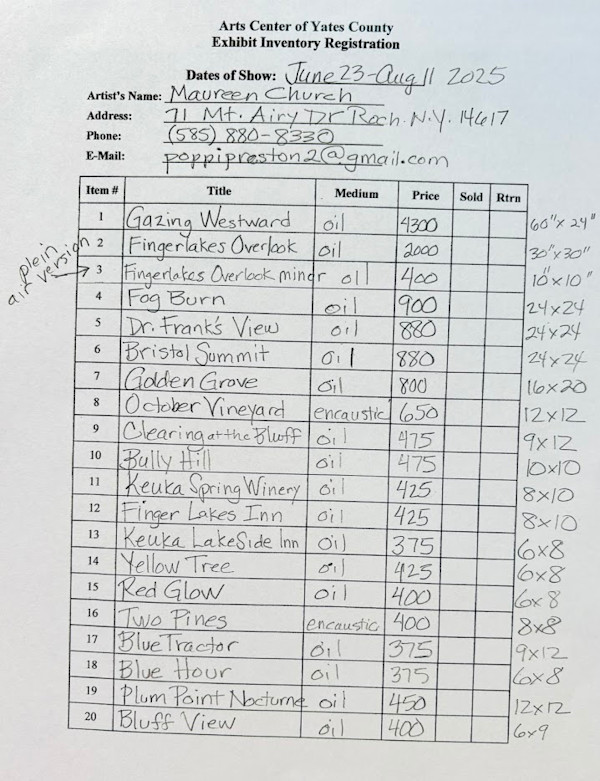 Arts Center of Yates County
Exhibit Inventory Registration
Dates of Show: June 23-Aug 11 2025
Artist's Name: Maureen Church
Address: 71 Mt. Airy Dr Roch. N.Y. 14617
Phone: (585) 880-8330
E-Mail: poppipreston2@gmail.com
Item # Title Medium Price Sold Rtrn
1 Gazing Westward oil 4300 60"x 24"
2 Fingerlakes Overlook oil 2000 30"x30"
plein air version → 3 Fingerlakes Overlook minor oil 400 10"x10"
4 Fog Burn oil 900 24x24
5 Dr. Frank's View oil 880 24x24
6 Bristol Summit oil 880 24x24
7 Golden Grove oil 800 16x20
8 October Vineyard encaustic 650 12x12
9 Clearing at the Bluff oil 475 9x12
10 Bully Hill oil 475 10x10
11 Keuka Spring Winery oil 425 8x10
12 Finger Lakes Inn oil 425 8x10
13 Keuka LakeSide Inn oil 375 6x8
14 Yellow Tree oil 425 6x8
15 Red Glow oil 400 6x8
16 Two Pines encaustic 400 8x8
17 Blue Tractor oil 375 9x12
18 Blue Hour oil 375 6x8
19 Plum Point Nocturne oil 450 12x12
20 Bluff View oil 400 6x9